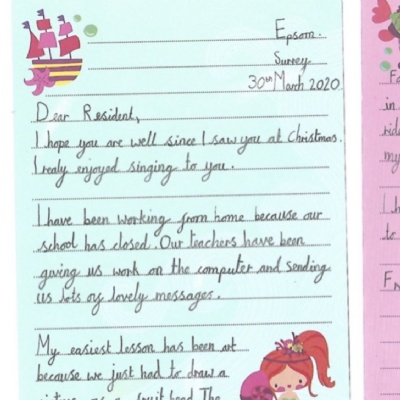 Epsom.
Surrey
30th March 2020
Dear Resident,
I hope you are well since I saw you at Christmas.
I realy enjoyed singing to you.
I have been working from home because our
school has closed. Our teachers have been
giving us work on the computer and sending
us lots of lovely messages.
My easiest lesson has been art
because we just had to draw a
picture of a fruit head The
in
my
I h
to